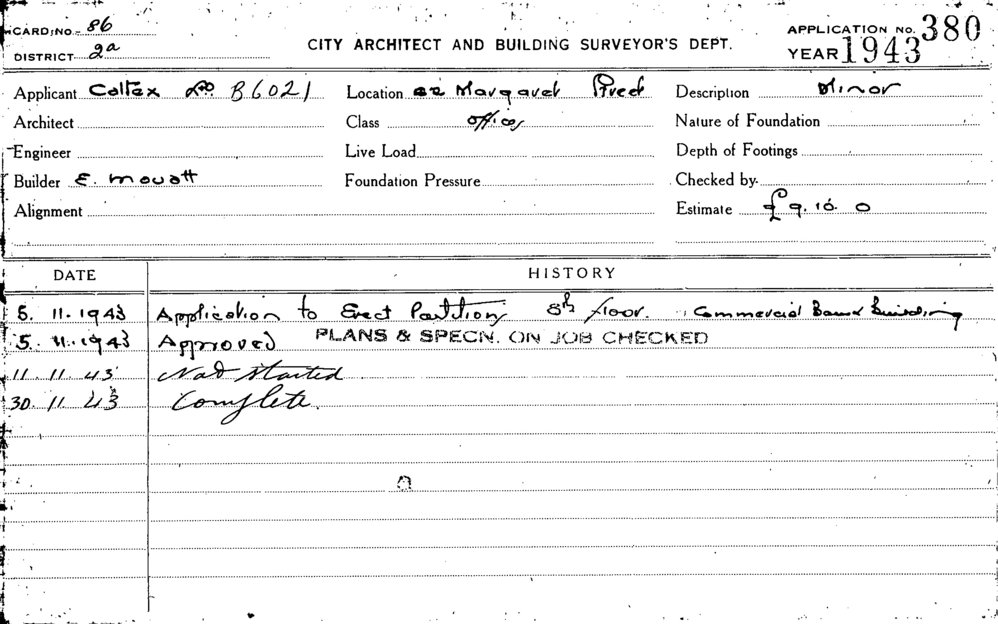 CARD NO. 86
DISTRICT 2a
CITY ARCHITECT AND BUILDING SURVEYOR'S DEPT.
APPLICATION NO. 380
YEAR 1943
Applicant Caltex Ltd. B6021 Location Margaret Street Description Minor
Architect Class offices Nature of Foundation
Engineer Live Load Depth of Footings
Builder E. Mouatt Foundation Pressure Checked by
Alignment Estimate £9. 10. 0
DATE HISTORY
5. 11. 1943 Application to Erect Partition 8th floor. Commercial Bank Building
5. 11. 1943 Approved PLANS & SPECN. ON JOB CHECKED
11. 11. 43 Not started
30. 11. 43 Complete.